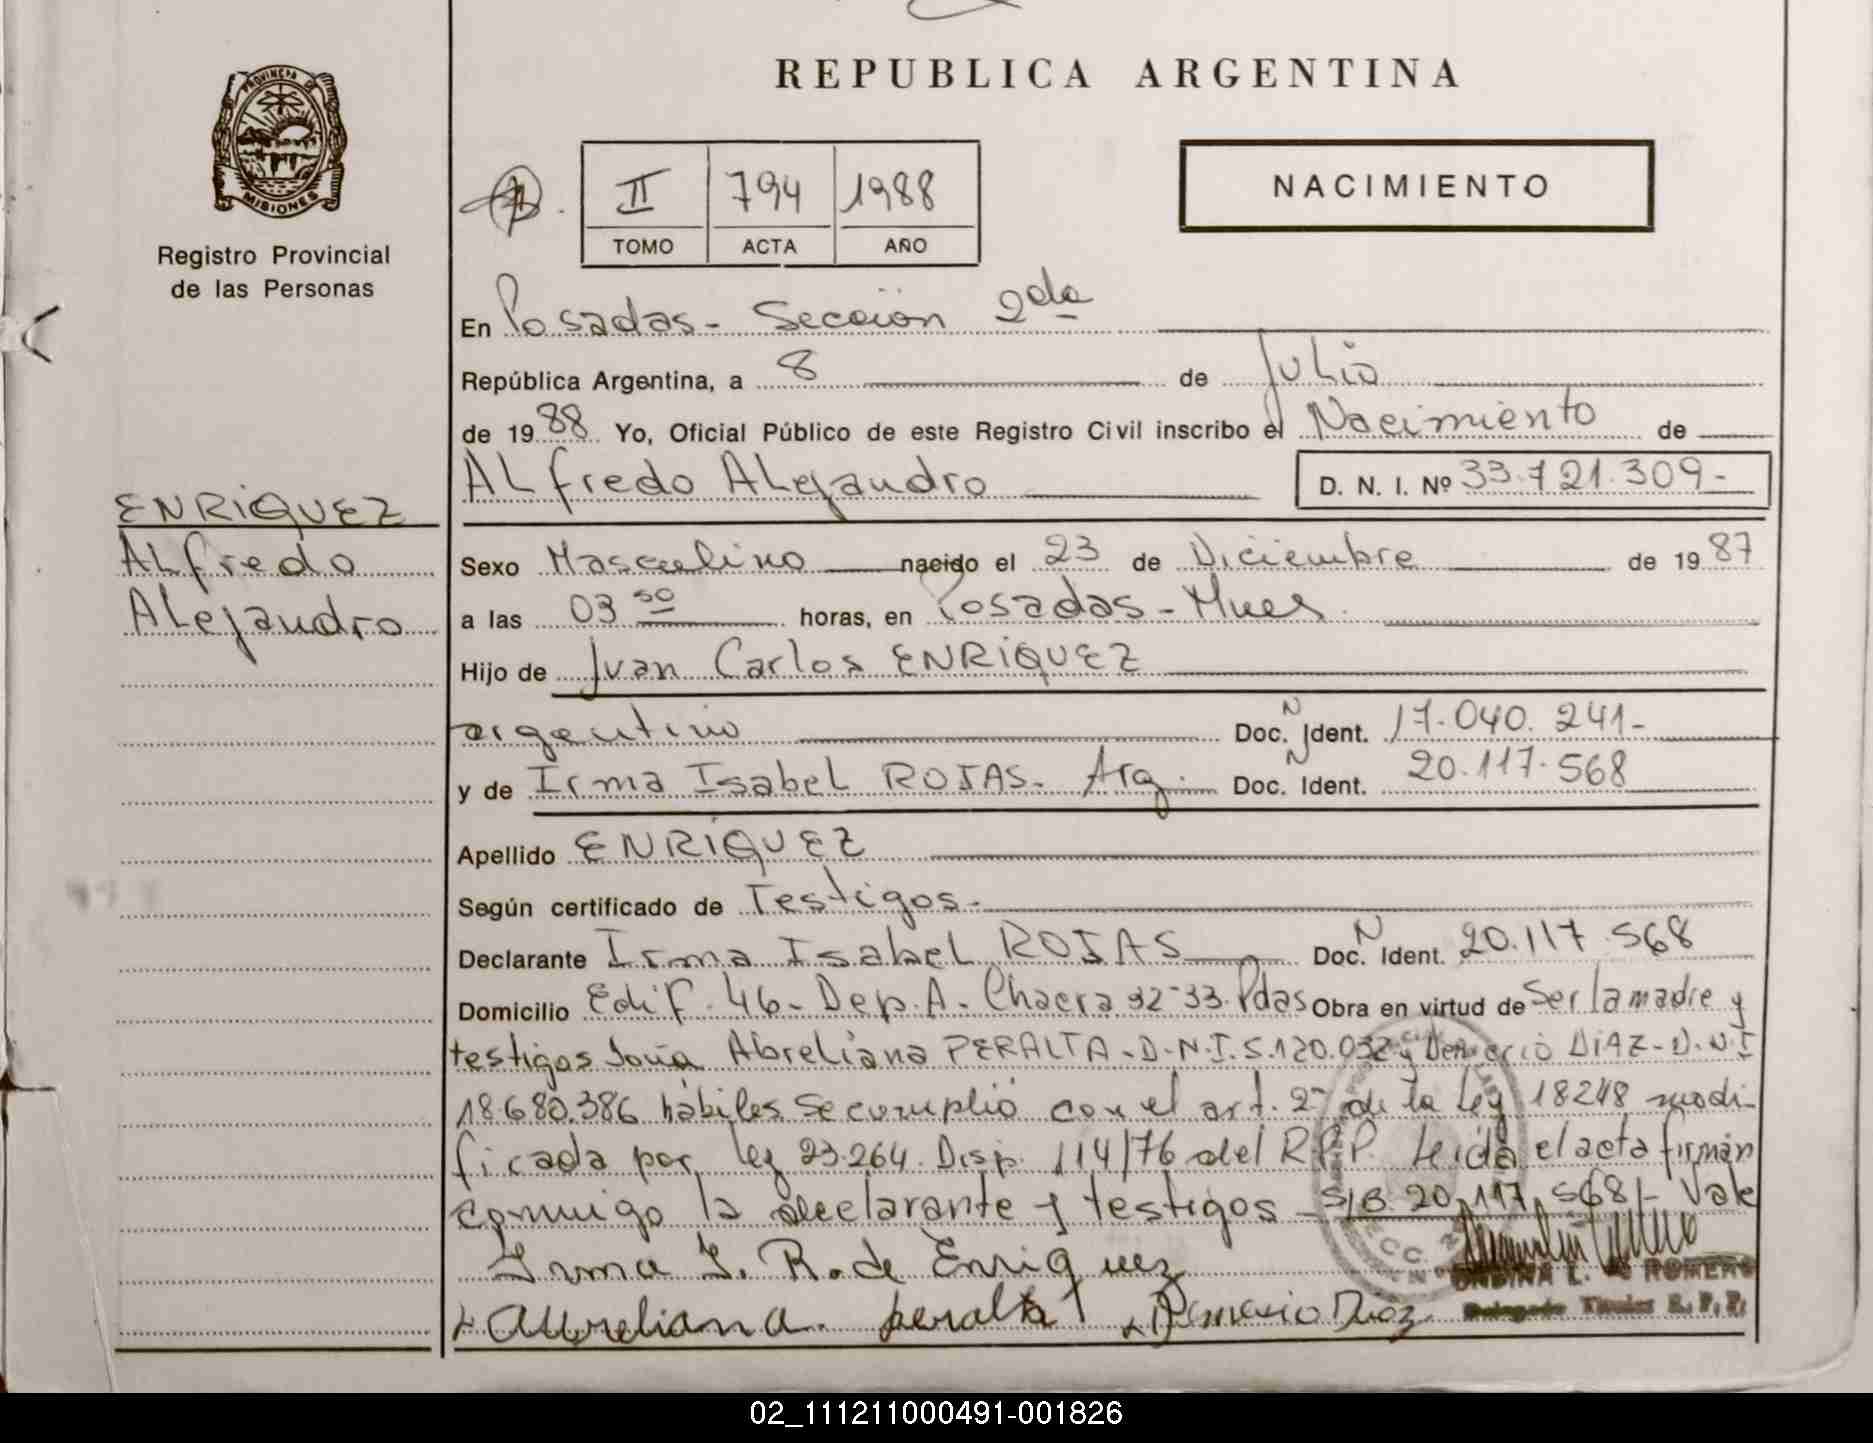 REPUBLICA ARGENTINA
PROVINCIA DE
MISIONES
Registro Provincial
de las Personas
II 794 1988
TOMO ACTA AÑO
NACIMIENTO
En Posadas- Sección 2da
República Argentina, a 8 de Julio
de 1988 Yo, Oficial Público de este Registro Civil inscribo el Nacimiento de
ALfredo ALejandro D. N. I. Nº 33.721.309-
ENRIQUEZ
ALfredo
ALejandro
Sexo Masculino nacido el 23 de Diciembre de 1987
a las 03 50 horas, en Posadas-Mnes.
Hijo de Juan Carlos ENRIQUEZ
argentino Doc. N Ident. 17.040.241-
y de Irma Isabel ROJAS. Arg. Doc. N Ident. 20.117.568
Apellido ENRIQUEZ
Según certificado de Testigos-
Declarante Irma Isabel ROJAS Doc. N Ident. 20.117.568
Domicilio Edif. 46- Dep. A- Chacra 32-33. Pdas Obra en virtud de Ser la madre y
testigos Abreliana PERALTA-D.N.I. 5.120.032 y DIAZ-D.N.I
18.680.386 hábiles se cumplió con el art. 2º de la Ley 18248 modi-
ficada por ley 23.264. Disp. 114/76 del R.P.P. Leida el acta firman
conmigo la declarante y testigos - S/B. 20.117.568/- Vale
Irma I. R. de Enriquez
Aureliana. peralta Diaz
ONDINA L. de ROMERO
Delegada Titular R. P. P.
02_111211000491-001826